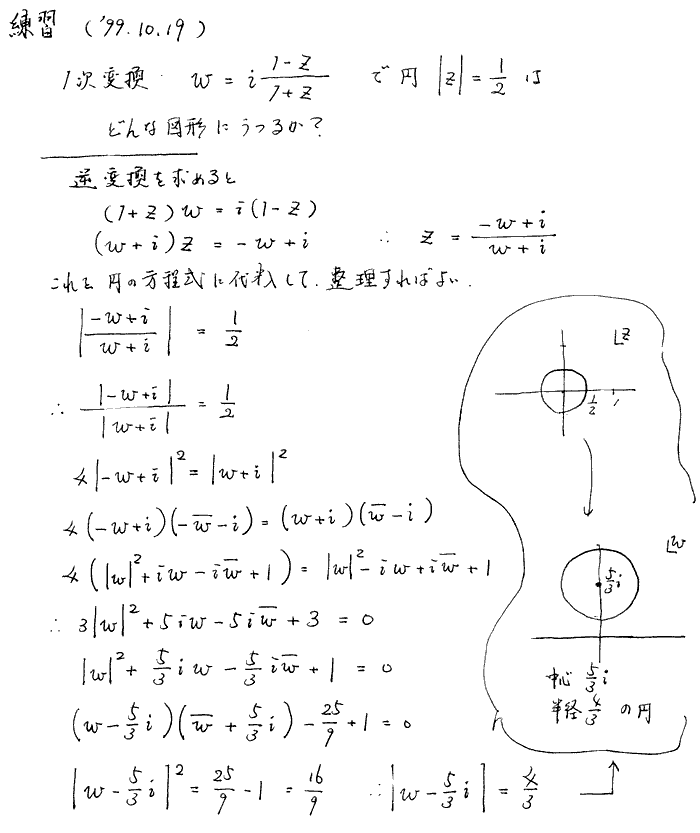 練習 ('99.10.19)
1次変換 w = i (1-z)/(1+z) で 円 |z| = 1/2 は
どんな図形にうつるか?
逆変換を求めると
(1+z)w = i(1-z)
(w+i)z = -w+i ∴ z = (-w+i)/(w+i)
これを 円の方程式に代入して. 整理すればよい.
|(-w+i)/(w+i)| = 1/2
∴ |-w+i|/|w+i| = 1/2
4|-w+i|² = |w+i|²
4(-w+i)(-w̄-i) = (w+i)(w̄-i)
4(|w|²+iw-iw̄+1) = |w|²-iw+iw̄+1
∴ 3|w|²+5iw-5iw̄+3 = 0
|w|²+5/3 iw-5/3 iw̄+1 = 0
(w-5/3 i)(w̄+5/3 i)-25/9+1 = 0
|w-5/3 i|² = 25/9-1 = 16/9 ∴ |w-5/3 i| = 4/3
z
1/2 1
w
5/3 i
中心 5/3 i
半径 4/3 の円